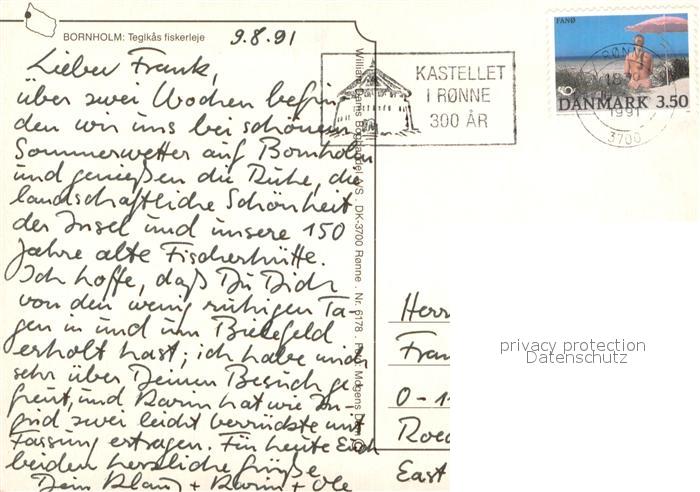 BORNHOLM: Teglkås fiskerleje
9.8.91
Lieber Frank,
über zwei Wochen befin-
den wir uns bei schönem
Sommerwetter auf Bornholm
und genießen die Ruhe, die
landschaftliche Schönheit
der Insel und unsere 150
Jahre alte Fischerhütte.
Ich hoffe, daß Du Dich
von den wenig ruhigen Ta-
gen in und um Bielefeld
erholt hast; ich habe mich
sehr über Deinen Besuch ge-
freut, und Karin hat wie
zwei leicht verrückte mit
Fassung ertragen. Für heute Euch
beiden herzliche Grüße
Dein Klaus + Karin + Ole
William Dams Boghandel A/S . DK-3700 Rønne . Nr. 6178 . Foto: Mogens
KASTELLET
I RØNNE
300 ÅR
FANØ
DANMARK 3.50
RØNNE
1991
3700
Herr
Fran
O-1
Roed
East
privacy protection
Datenschutz